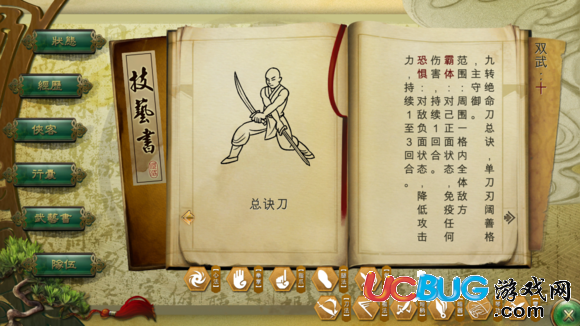 狀態
經歷
俠客
行囊
武藝書
隊伍
技藝書
总诀刀
双武：十
九转绝命刀总诀，单刀刃阔善格
，主守御。
范围：周围一格内全体敌方
霸体：对己正面状态，免疫任何
伤害，持续1回合。
恐惧：对敌负面状态，降低攻击
力，持续1至3回合。
UCBUG游戏网
.com